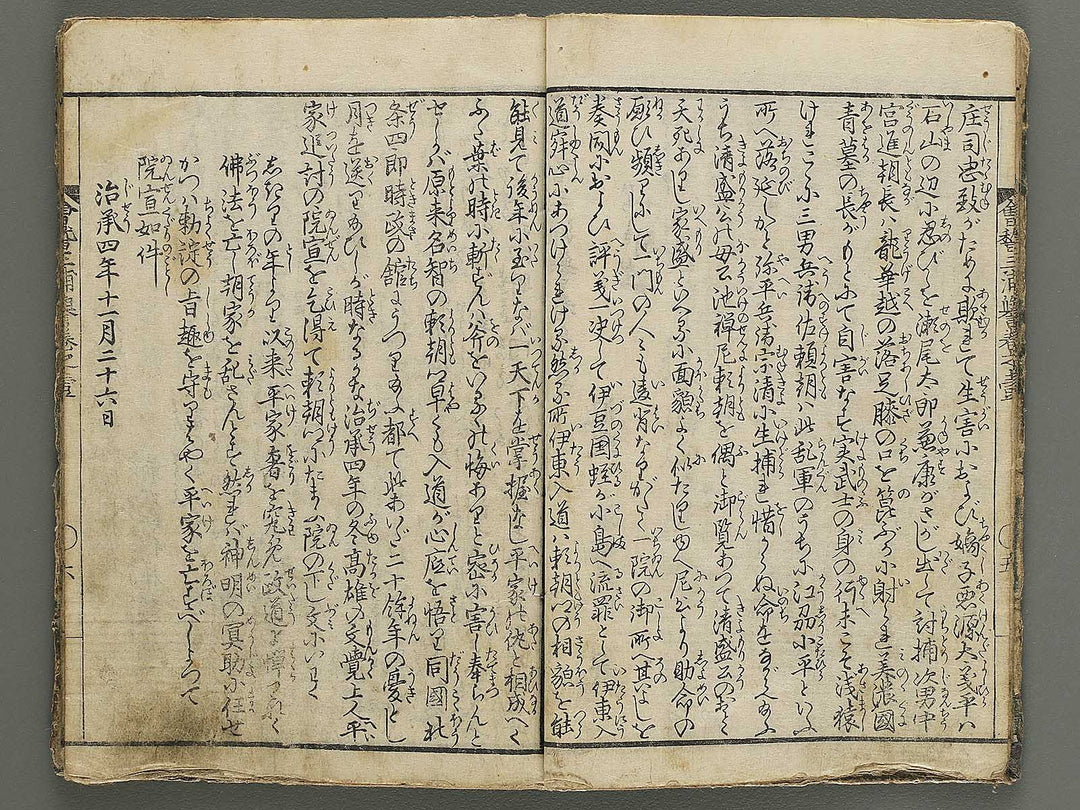 庄司忠致がために欺れて生害におよび嫡子悪源太義平ハ
石山の辺に忍びしを瀬尾太郎兼康がさがし出して討捕次男中
宮進朝長ハ龍華越の落足膝の口を箆ぶかに射られ美濃国
青墓の長がもとにて自害なす実武士の身の行末こそ浅猿
けれこゝに三男兵衛佐頼朝ハ此乱軍のうちに江刕小平といふ
所へ落延しが弥平兵衛宗清に生捕れ惜からぬ命をながらふ
うち清盛公の母公池禅尼頼朝を偶と御覧あつて清盛公の
夭死ありし家盛といへるに面貌よく似たりしゆへ尼公より助命の
願ひ頻りにして一門の人々も違背なりがたく一院の御所其よしを
奏聞におよび評義一决して伊豆国蛭が小島へ流罪として伊東入
道寐心にあづけられける然る所伊東入道ハ頼朝の相貌を能
能見て後年に至りなバ一天下を掌握なし平家の仇と相成べく
ふた葉の時に斬ずんハ斧をいるゝの悔ありと密に害し奉らんと
せしが原来名智の頼朝ハ早くも入道が心底を悟り同國北
条四郎時政の舘にうつり玉ふ都て此あいだ二十餘年の憂とし
月を送り玉ひしが時なるかな治承四年の冬高雄の文覺上人平
家追討の院宣を乞得て頼朝ににたまふ院の下し文にいはく
去りぬるの年より以来平家奢を究免政道を憚らず
佛法を亡し朝家を乱さんとす然れバ神明の冥助に任せ
かつハ勅諚の旨趣を守りはやく平家を亡すべしよつて
院宣如件
治承四年十一月二十六日